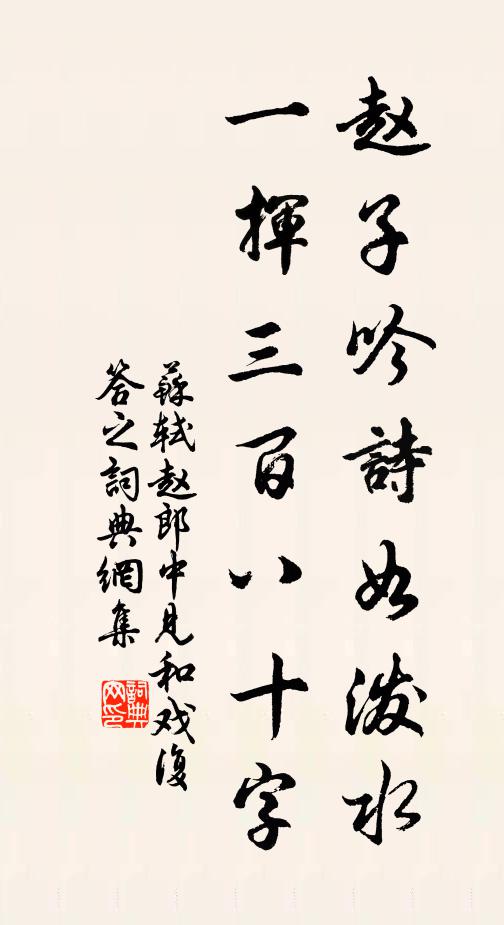 赵子吟詩如泼水
一揮三百八十字
蘇轼赵郎中見和戏復
答之詞典網集
詞典网印